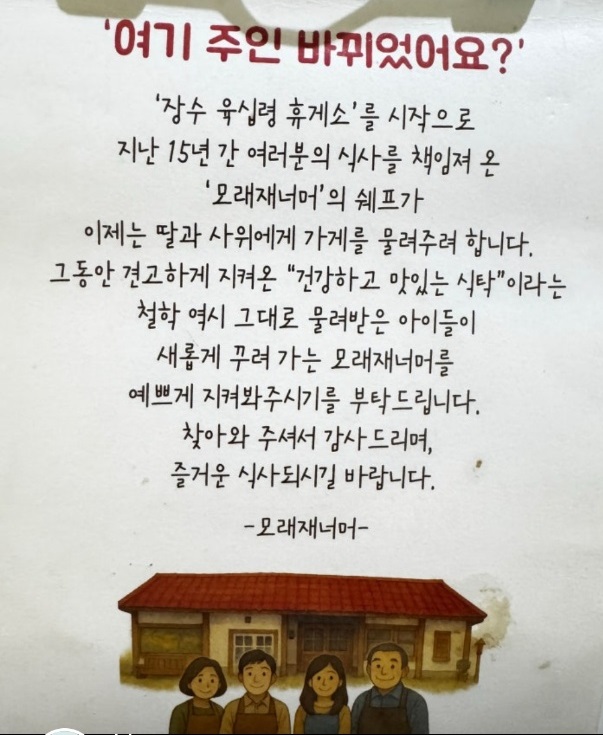 '여기 주인 바뀌었어요?'
'장수 육십령 휴게소'를 시작으로
지난 15년 간 여러분의 식사를 책임져 온
'모래재너머'의 쉐프가
이제는 딸과 사위에게 가게를 물려주려 합니다.
그동안 견고하게 지켜온 "건강하고 맛있는 식탁"이라는
철학 역시 그대로 물려받은 아이들이
새롭게 꾸려 가는 모래재너머를
예쁘게 지켜봐주시기를 부탁드립니다.
찾아와 주셔서 감사드리며,
즐거운 식사되시길 바랍니다.
-모래재너머-